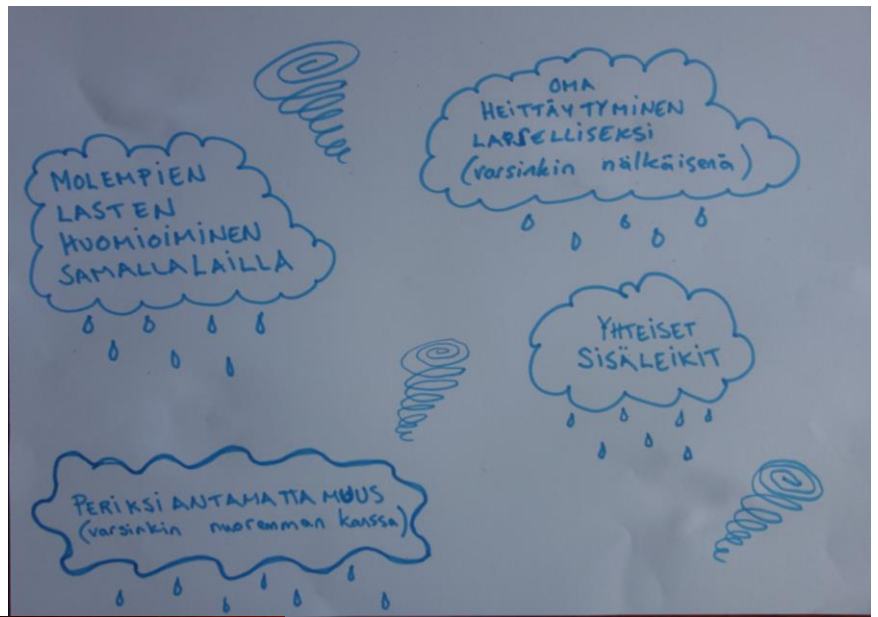 MOLEMPIEN
LASTEN
HUOMIOIMINEN
SAMALLA LAILLA
OMA
HEITTÄYTYMINEN
LAPSELLISEKSI
(varsinkin nälkäisenä)
YHTEISET
SISÄLEIKIT
PERIKSI ANTAMATTAMUUS
(varsinkin nuoremman kanssa)